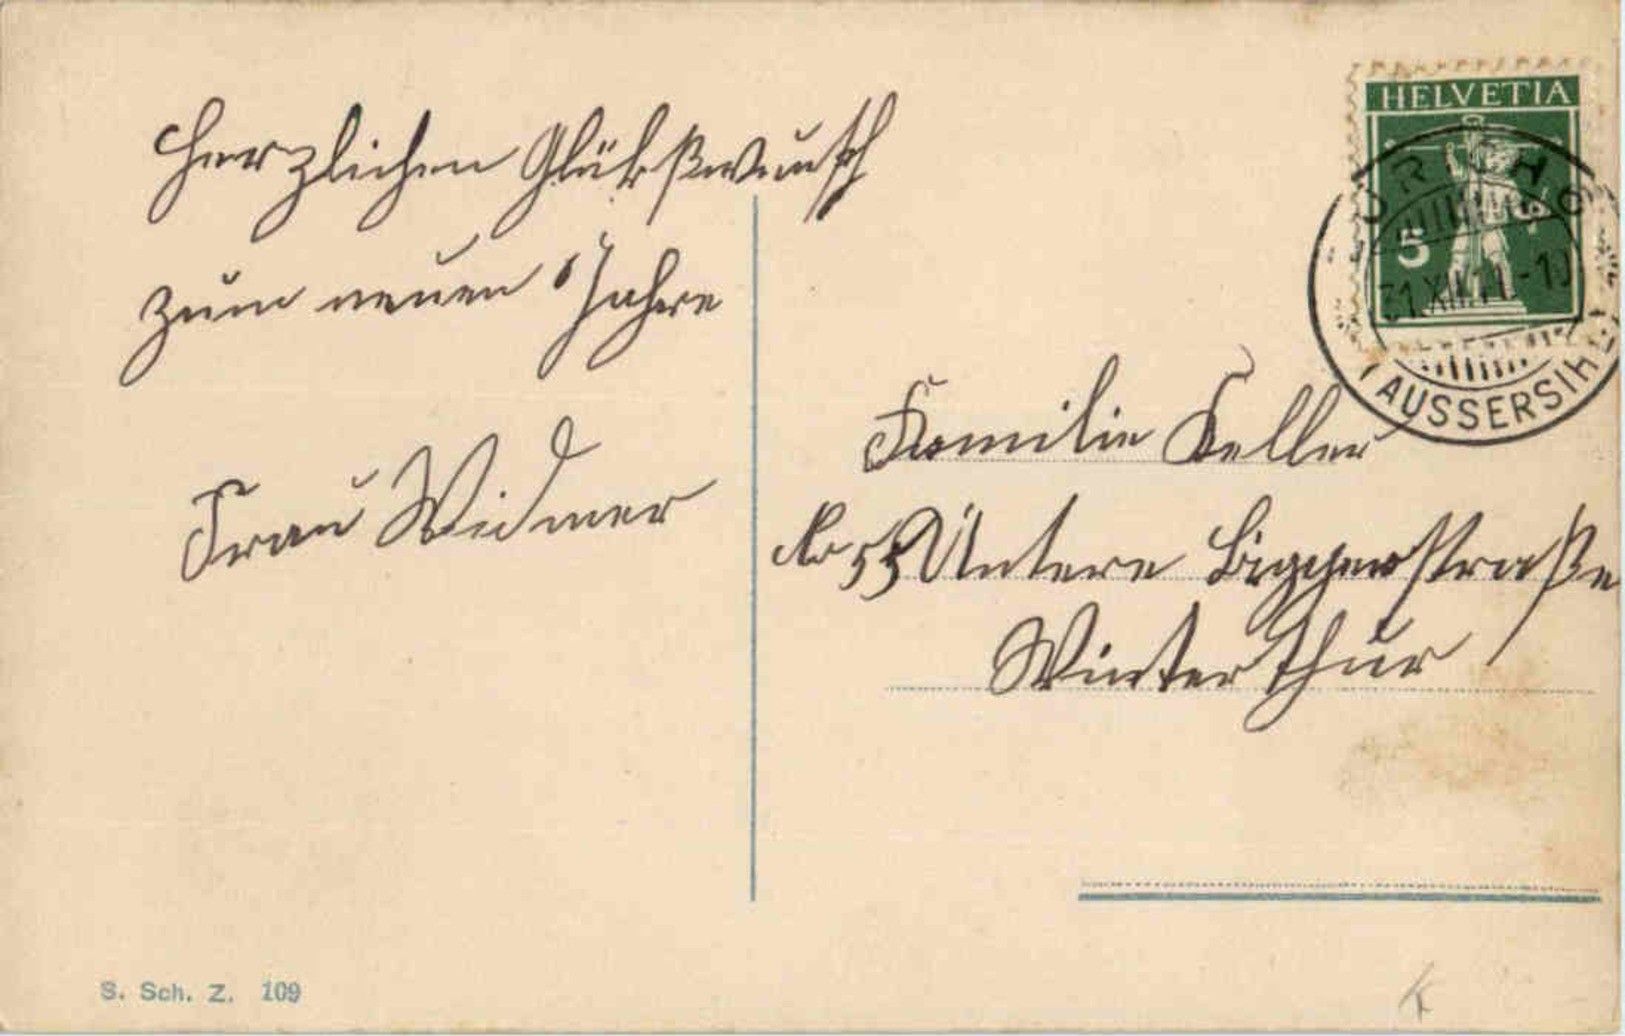 Herzlichen Glükßwunsch
zum neuen Jahre
Frau Widmer
HELVETIA
5
31.XII.11.-10
(AUSSERSIHL)
Familie Keller
No 55 Untere Briggerstraße
Winterthur
S. Sch. Z. 109